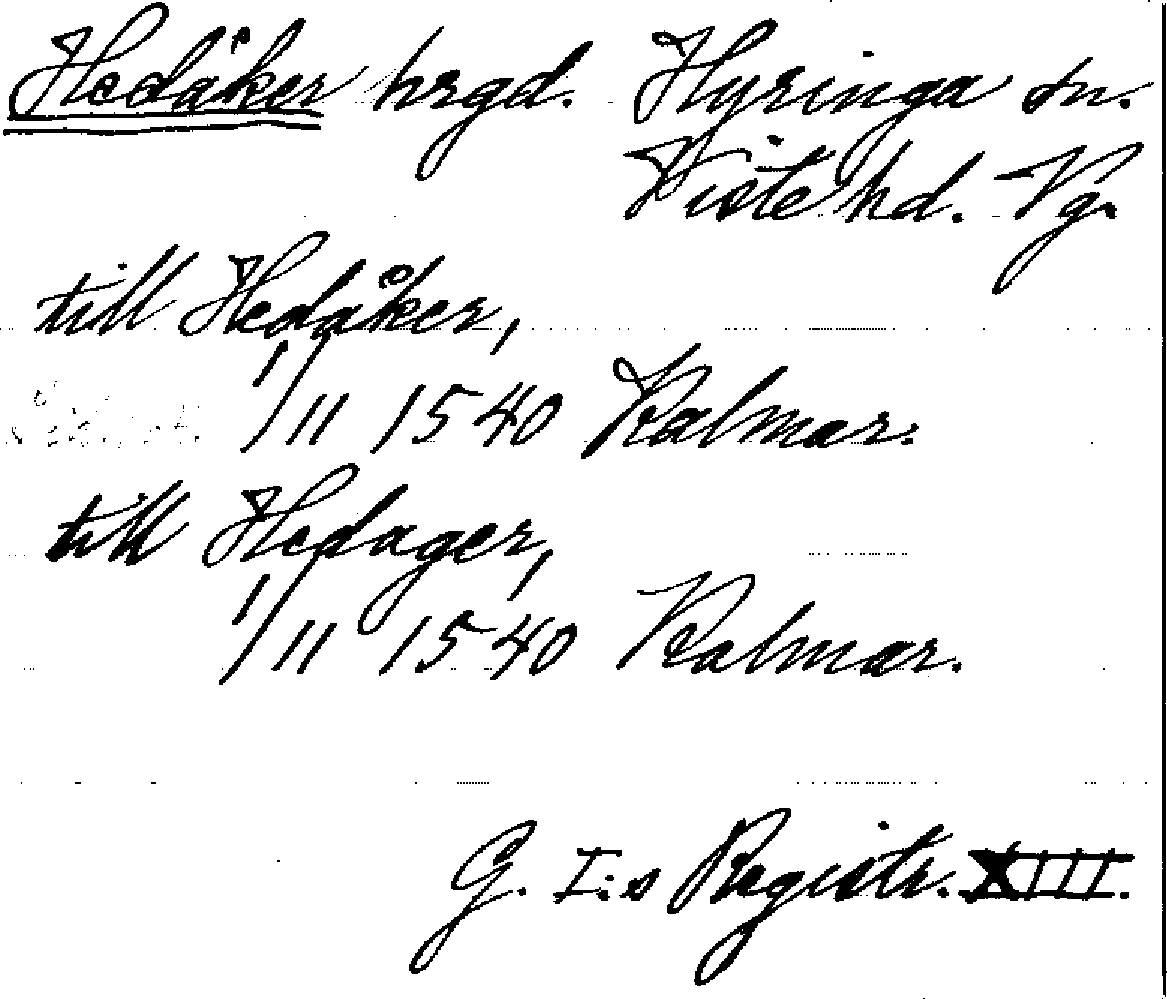 Hedåker hrgd. Hyringa sn.
Viste hd. Vg.
till Hedåker,
1/11 1540 Kalmar.
till Hedager,
1/11 1540 Kalmar.
G. I:s Registr. XIII.